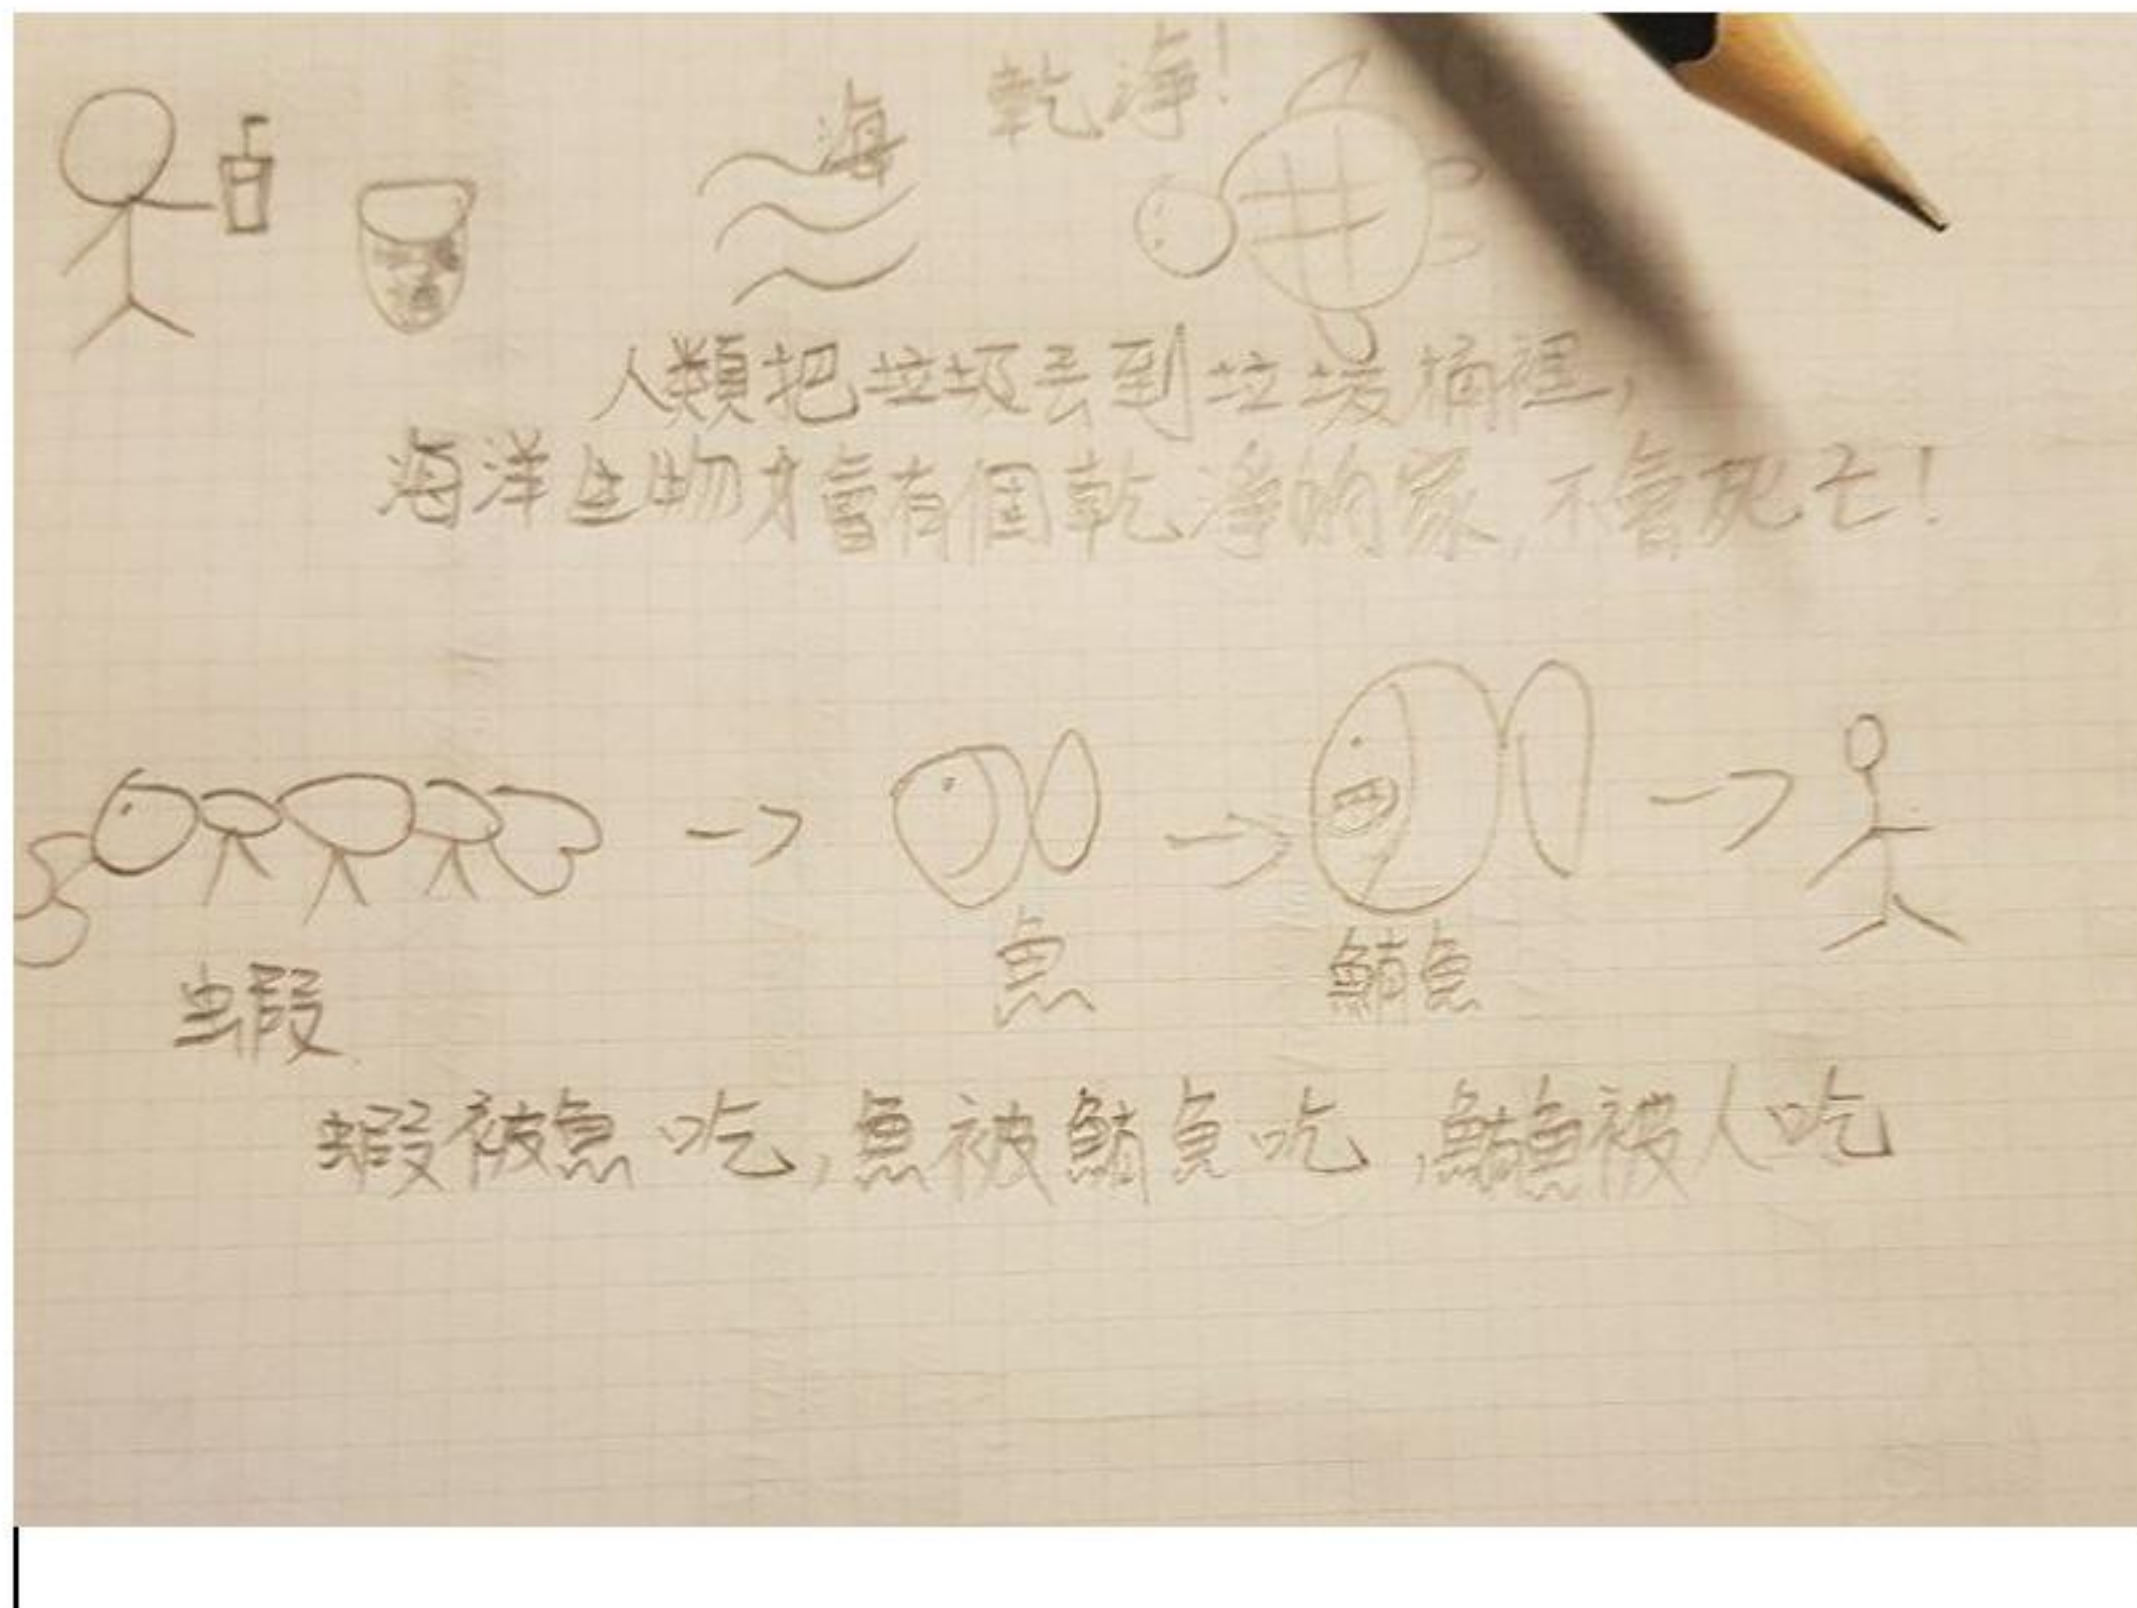 乾淨!
海
人類把垃圾丟到垃圾桶裡,
海洋生物才會有個乾淨的家,不會死亡!
蝦
魚
鯖魚
蝦被魚吃,魚被鯖魚吃,鯖魚被人吃